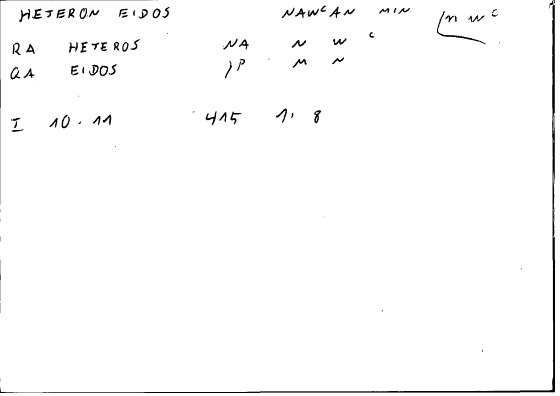 HETERON EIDOS NAWᶜAN MIN n wᶜ
RA HETEROS NA N W ᶜ
QA EIDOS P M N
I 10.11 415 1,8